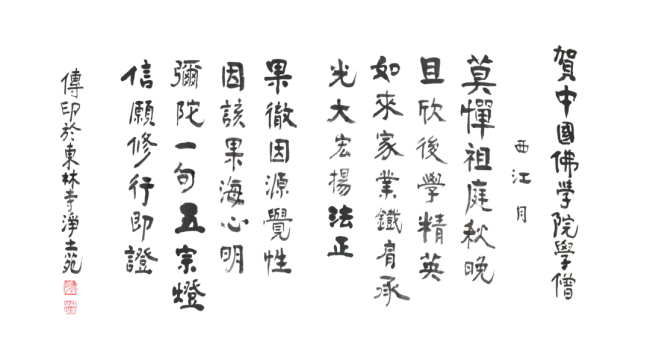 賀中國佛學院學僧
西江月
莫憚祖庭秋晚
且欣後學精英
如來家業鐵肩承
光大宏揚法正
果徹因源覺性
因該果海心明
彌陀一句五宗燈
信願修行即證
傳印於東林寺淨土苑